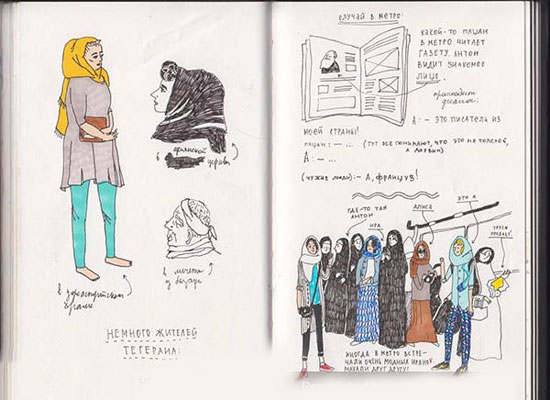 в армянской
церкви
в мечети
у базара
в зороастрийском
храме
НЕМНОГО ЖИТЕЛЕЙ
ТЕГЕРАНА:
СЛУЧАЙ В МЕТРО:
КАКОЙ-ТО ПАЦАН
В МЕТРО ЧИТАЕТ
ГАЗЕТУ. АНТОН
ВИДИТ ЗНАКОМОЕ
ЛИЦО.
происходит
диалог.
А: — ЭТО ПИСАТЕЛЬ ИЗ
МОЕЙ СТРАНЫ!
ПАЦАН: — ... (ТУТ ВСЕ ПОНИМАЮТ, ЧТО ЭТО НЕ ТОЛСТОЙ,
А ДАРВИН)
А: — ...
(ЧУЖИЕ ЛЮДИ): — А, ФРАНЦУЗ!
ГДЕ-ТО ТАМ
АНТОН
ИРА
АЛИСА
ЭТО Я
ИНОГДА В МЕТРО ВСТРЕ-
ЧАЛИ ОЧЕНЬ МОДНЫХ
МАХАЛИ ДРУГ ДРУГУ!